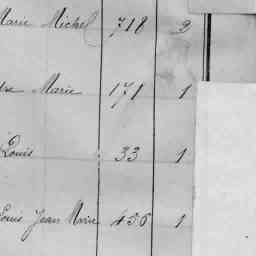 Marie Michel 718 2
Marie 171 1
Louis 33 1
Louis Jean Marie 456 1